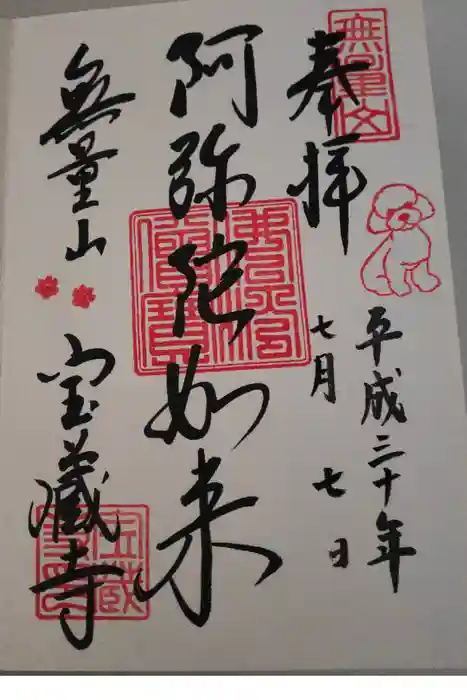 奉拝
平成三十年
七月 七日
阿弥陀如来
佛法僧寶
無量山
宝蔵寺